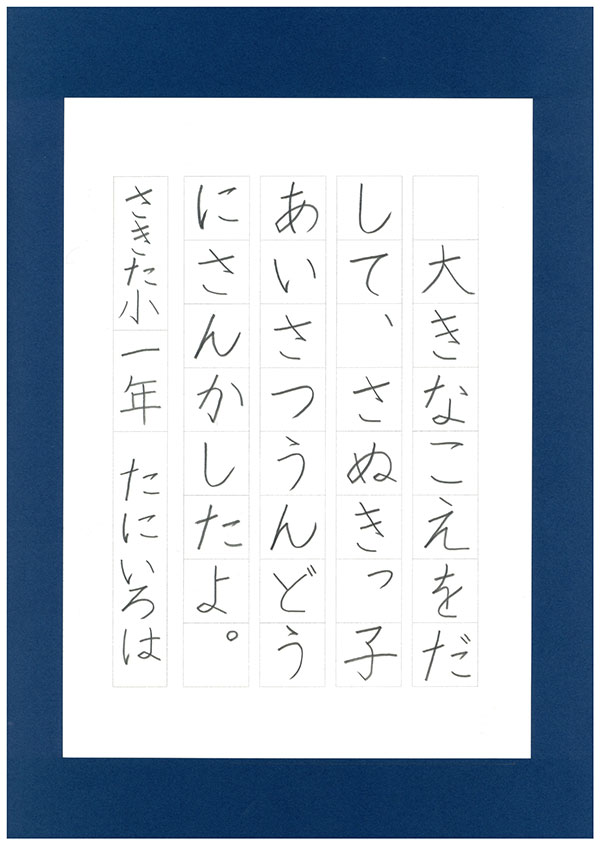 大きなこえをだ
して、さぬきっ子
あいさつうんどう
にさんかしたよ。
さきた小一年　たにいろは